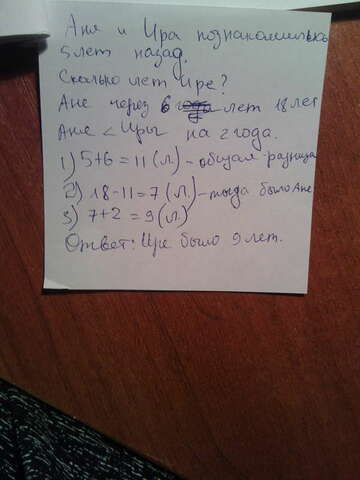 Аня и Ира познакомились
5 лет назад.
Сколько лет Ире?
Ане через 6 лет 18 лет
Аня < Иры на 2 года.
1) 5+6=11 (л.) - общая разница
2) 18-11=7 (л.) - тогда было Ане
3) 7+2=9 (л.)
Ответ: Ире было 9 лет.